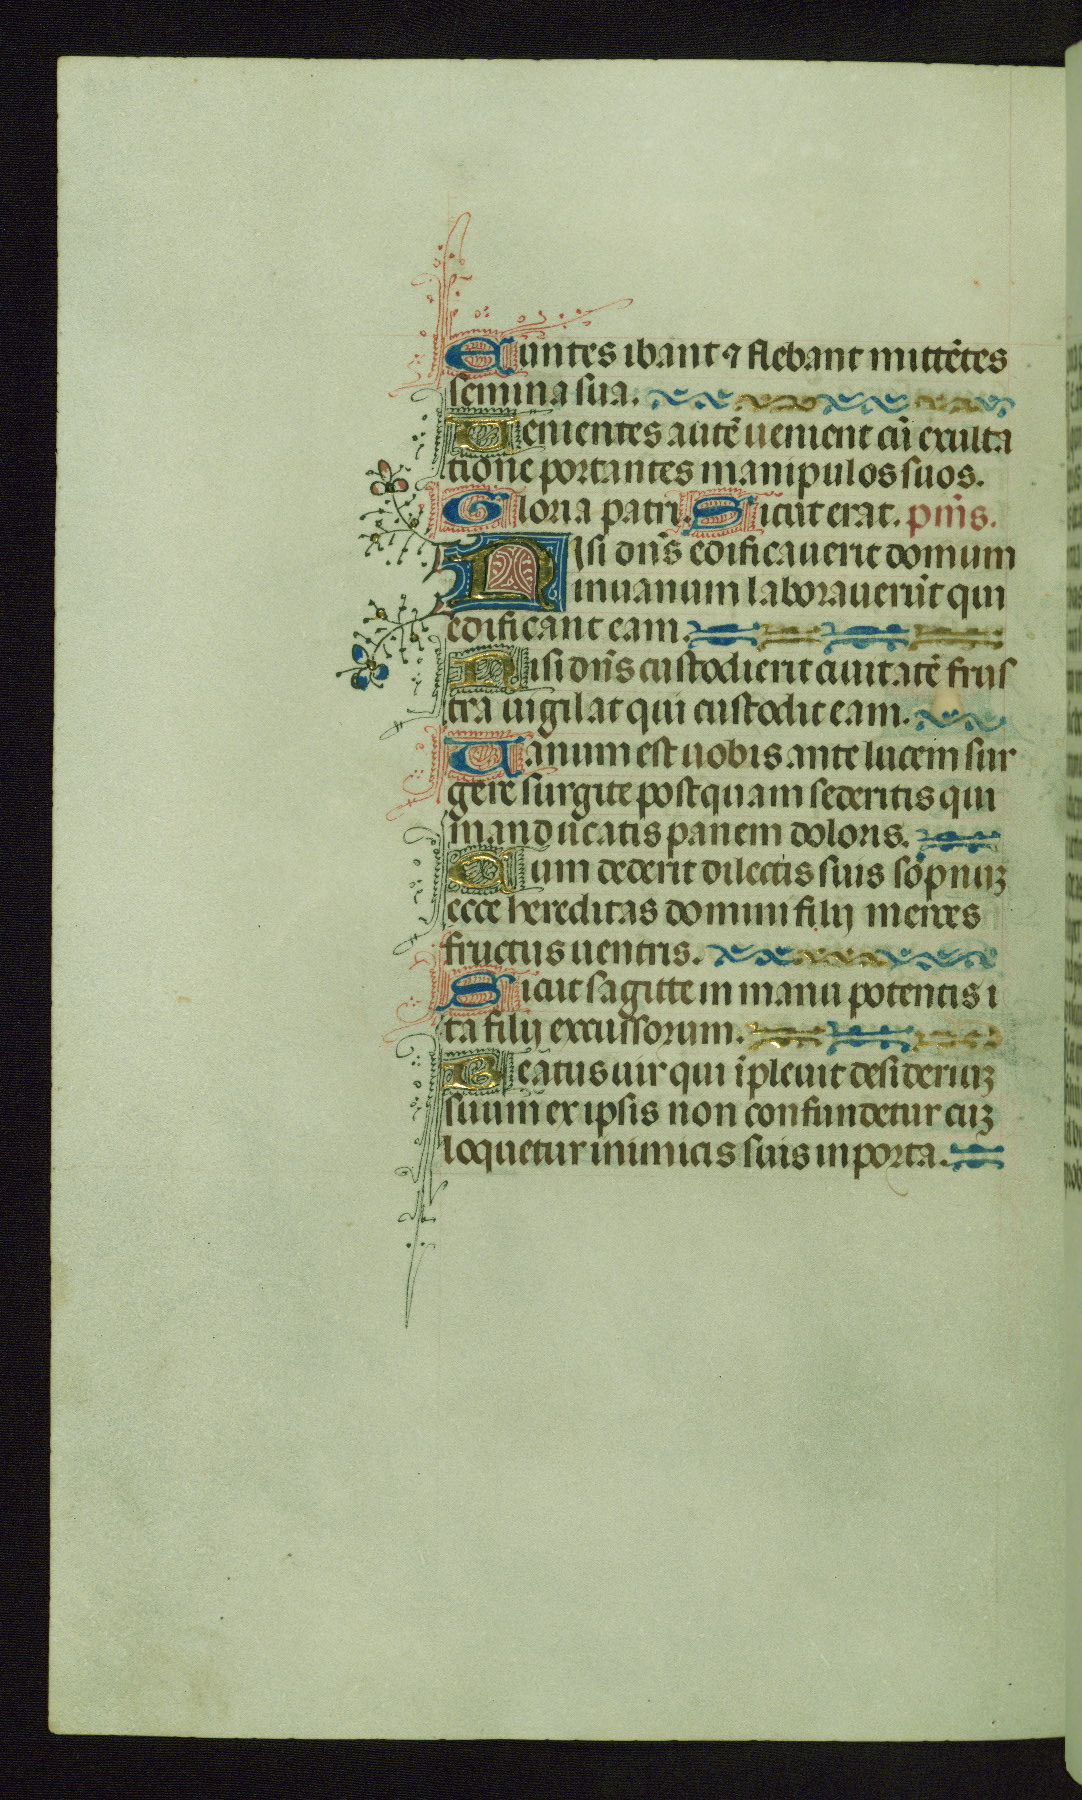 Euntes ibant ⁊ flebant mittētes
semina sua.
Uenientes autē uenient cū exulta
tione portantes manipulos suos.
Gloria patri. Sicut erat. p̄us.
Nisi dn̄s edificauerit domum
inuanum laborauerūt qui
edificant eam.
Nisi dn̄s custodierit ciuitatē frus
tra uigilat qui custodit eam.
Uanum est uobis ante lucem sur
gere surgite postquam sederitis qui
manducatis panem doloris.
Cum dederit dilectis suis sōpnuꝫ
ecce hereditas domini filij merces
fructus uentris.
Sicut sagitte in manu potentis i
ta filij excussorum.
Beatus uir qui īpleuit desideriuꝫ
suum ex ipsis non confundetur cuꝫ
loquetur inimicis suis in porta.